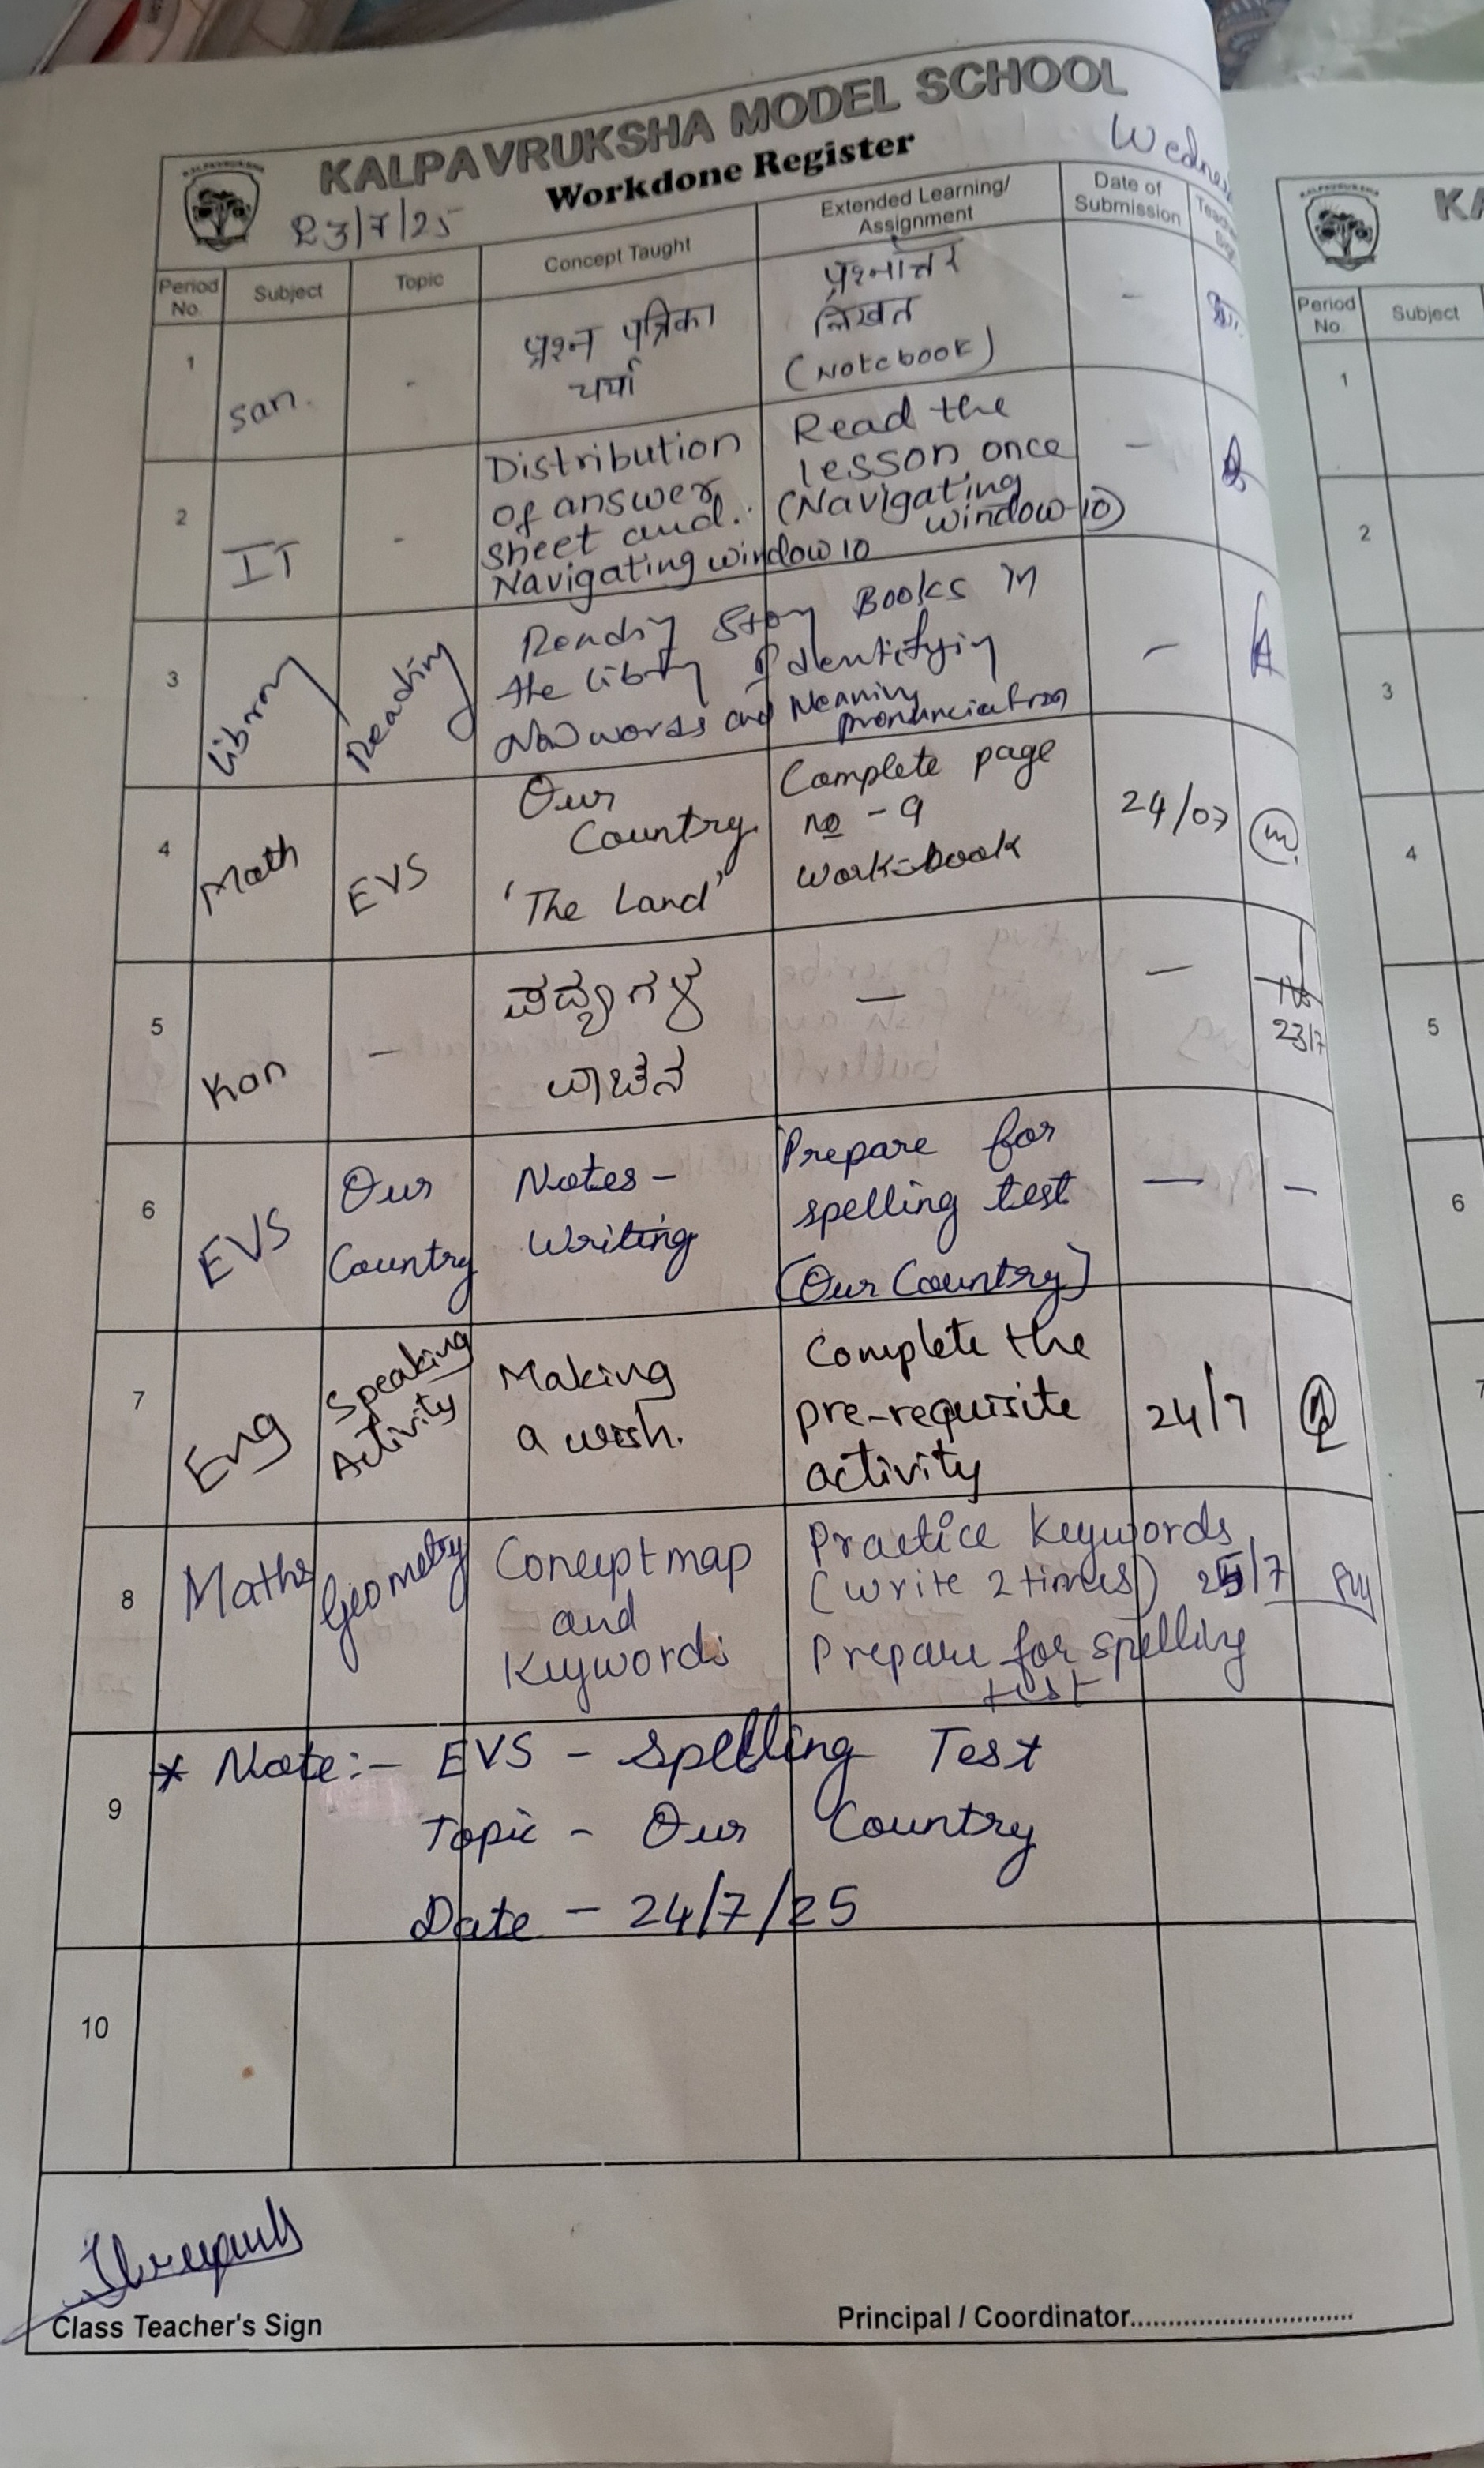 KALPAVRUKSHA MODEL SCHOOL
Workdone Register
Wednes
23/7/25
Period No.
Subject
Topic
Concept Taught
Extended Learning/
Assignment
Date of
Submission
1
San.
-
प्रश्न पत्रिका
चर्या
प्रश्नोत्तर
लिखत
(Notebook)
-
2
IT
-
Distribution
of answer
sheet and.
Navigating window 10
Read the
lesson once
(Navigating
window-10)
-
3
Library
Reading
Reading Story Books in
the library Identifying
New words and Meaning
pronunciation
-
4
Math
EVS
Our
Country.
'The Land'
Complete page
no - 9
work-book
24/07
5
Kan
-
ಪದ್ಯಗಳ
ವಾಚನ
-
-
23/7
6
EVS
Our
Country
Notes-
Writing
Prepare for
spelling test
(Our Country)
-
-
7
Eng
Speaking
Activity
Making
a wish.
Complete the
pre-requisite
activity
24/7
8
Maths
Geometry
Concept map
and
Keywords
Practice Keywords
(Write 2 times)
Prepare for spelling
test
25/7
9
* Note:- EVS - Spelling Test
Topic - Our Country
Date - 24/7/25
10
Class Teacher's Sign
Principal / Coordinator..............................
KA
Period
No.
Subject
1
2
3
4
5
6
7